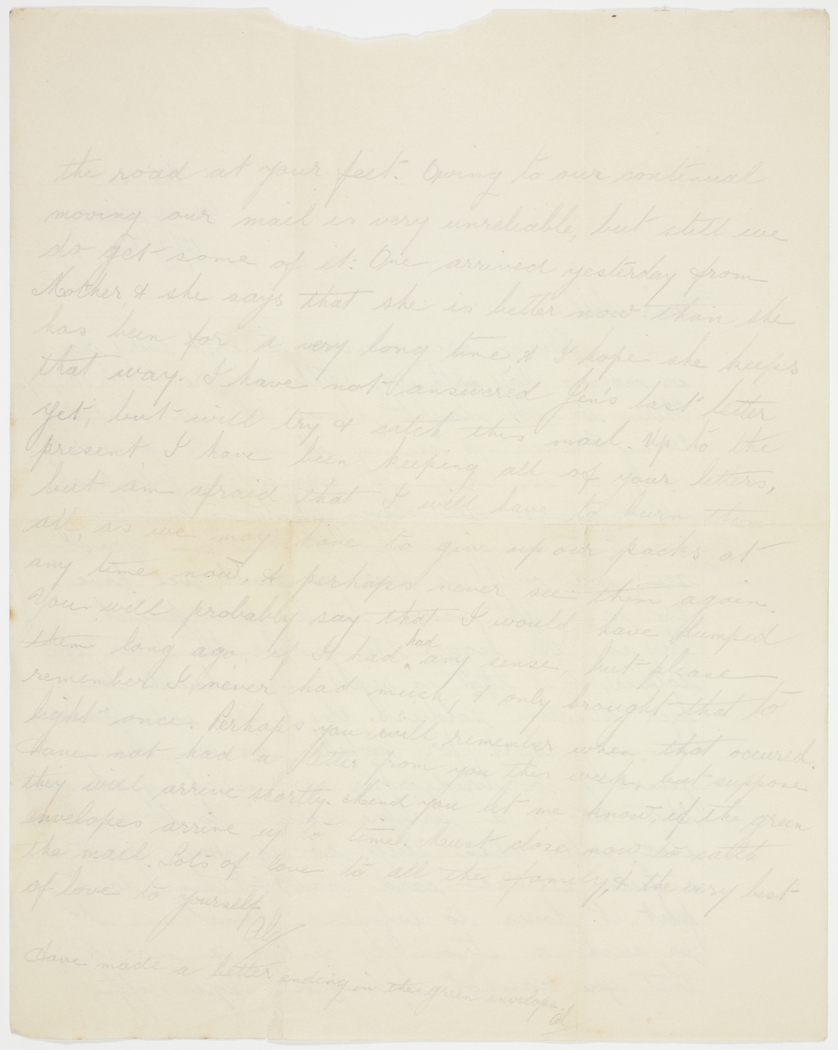 the road at your feet. Owing to our continual
moving our mail is very unreliable, but still we
do get some of it: One arrived yesterday from
Mother & she says that she is better now than she
has been for a very long time & I hope she keeps
that way. I have not answered Jen's last letter
yet, but will try & catch this mail. Up to the
present I have been keeping all of your letters,
but am afraid that I will have to burn them
all, as we may have to give up our packs at
any time now, & perhaps never see them again.
You will probably say that I would have dumped
them long ago if I had had any sense, but please
remember I never had much, & only brought that to
light once. Perhaps you will remember when that occured.
Have not had a letter from you this week, but suppose
they will arrive shortly. Mind you let me know, if the green
envelopes arrive up to time. Must close now to catch
the mail. Lots of love to all the family, & the very best
of love to yourself
Have made a better ending in the green envelope.